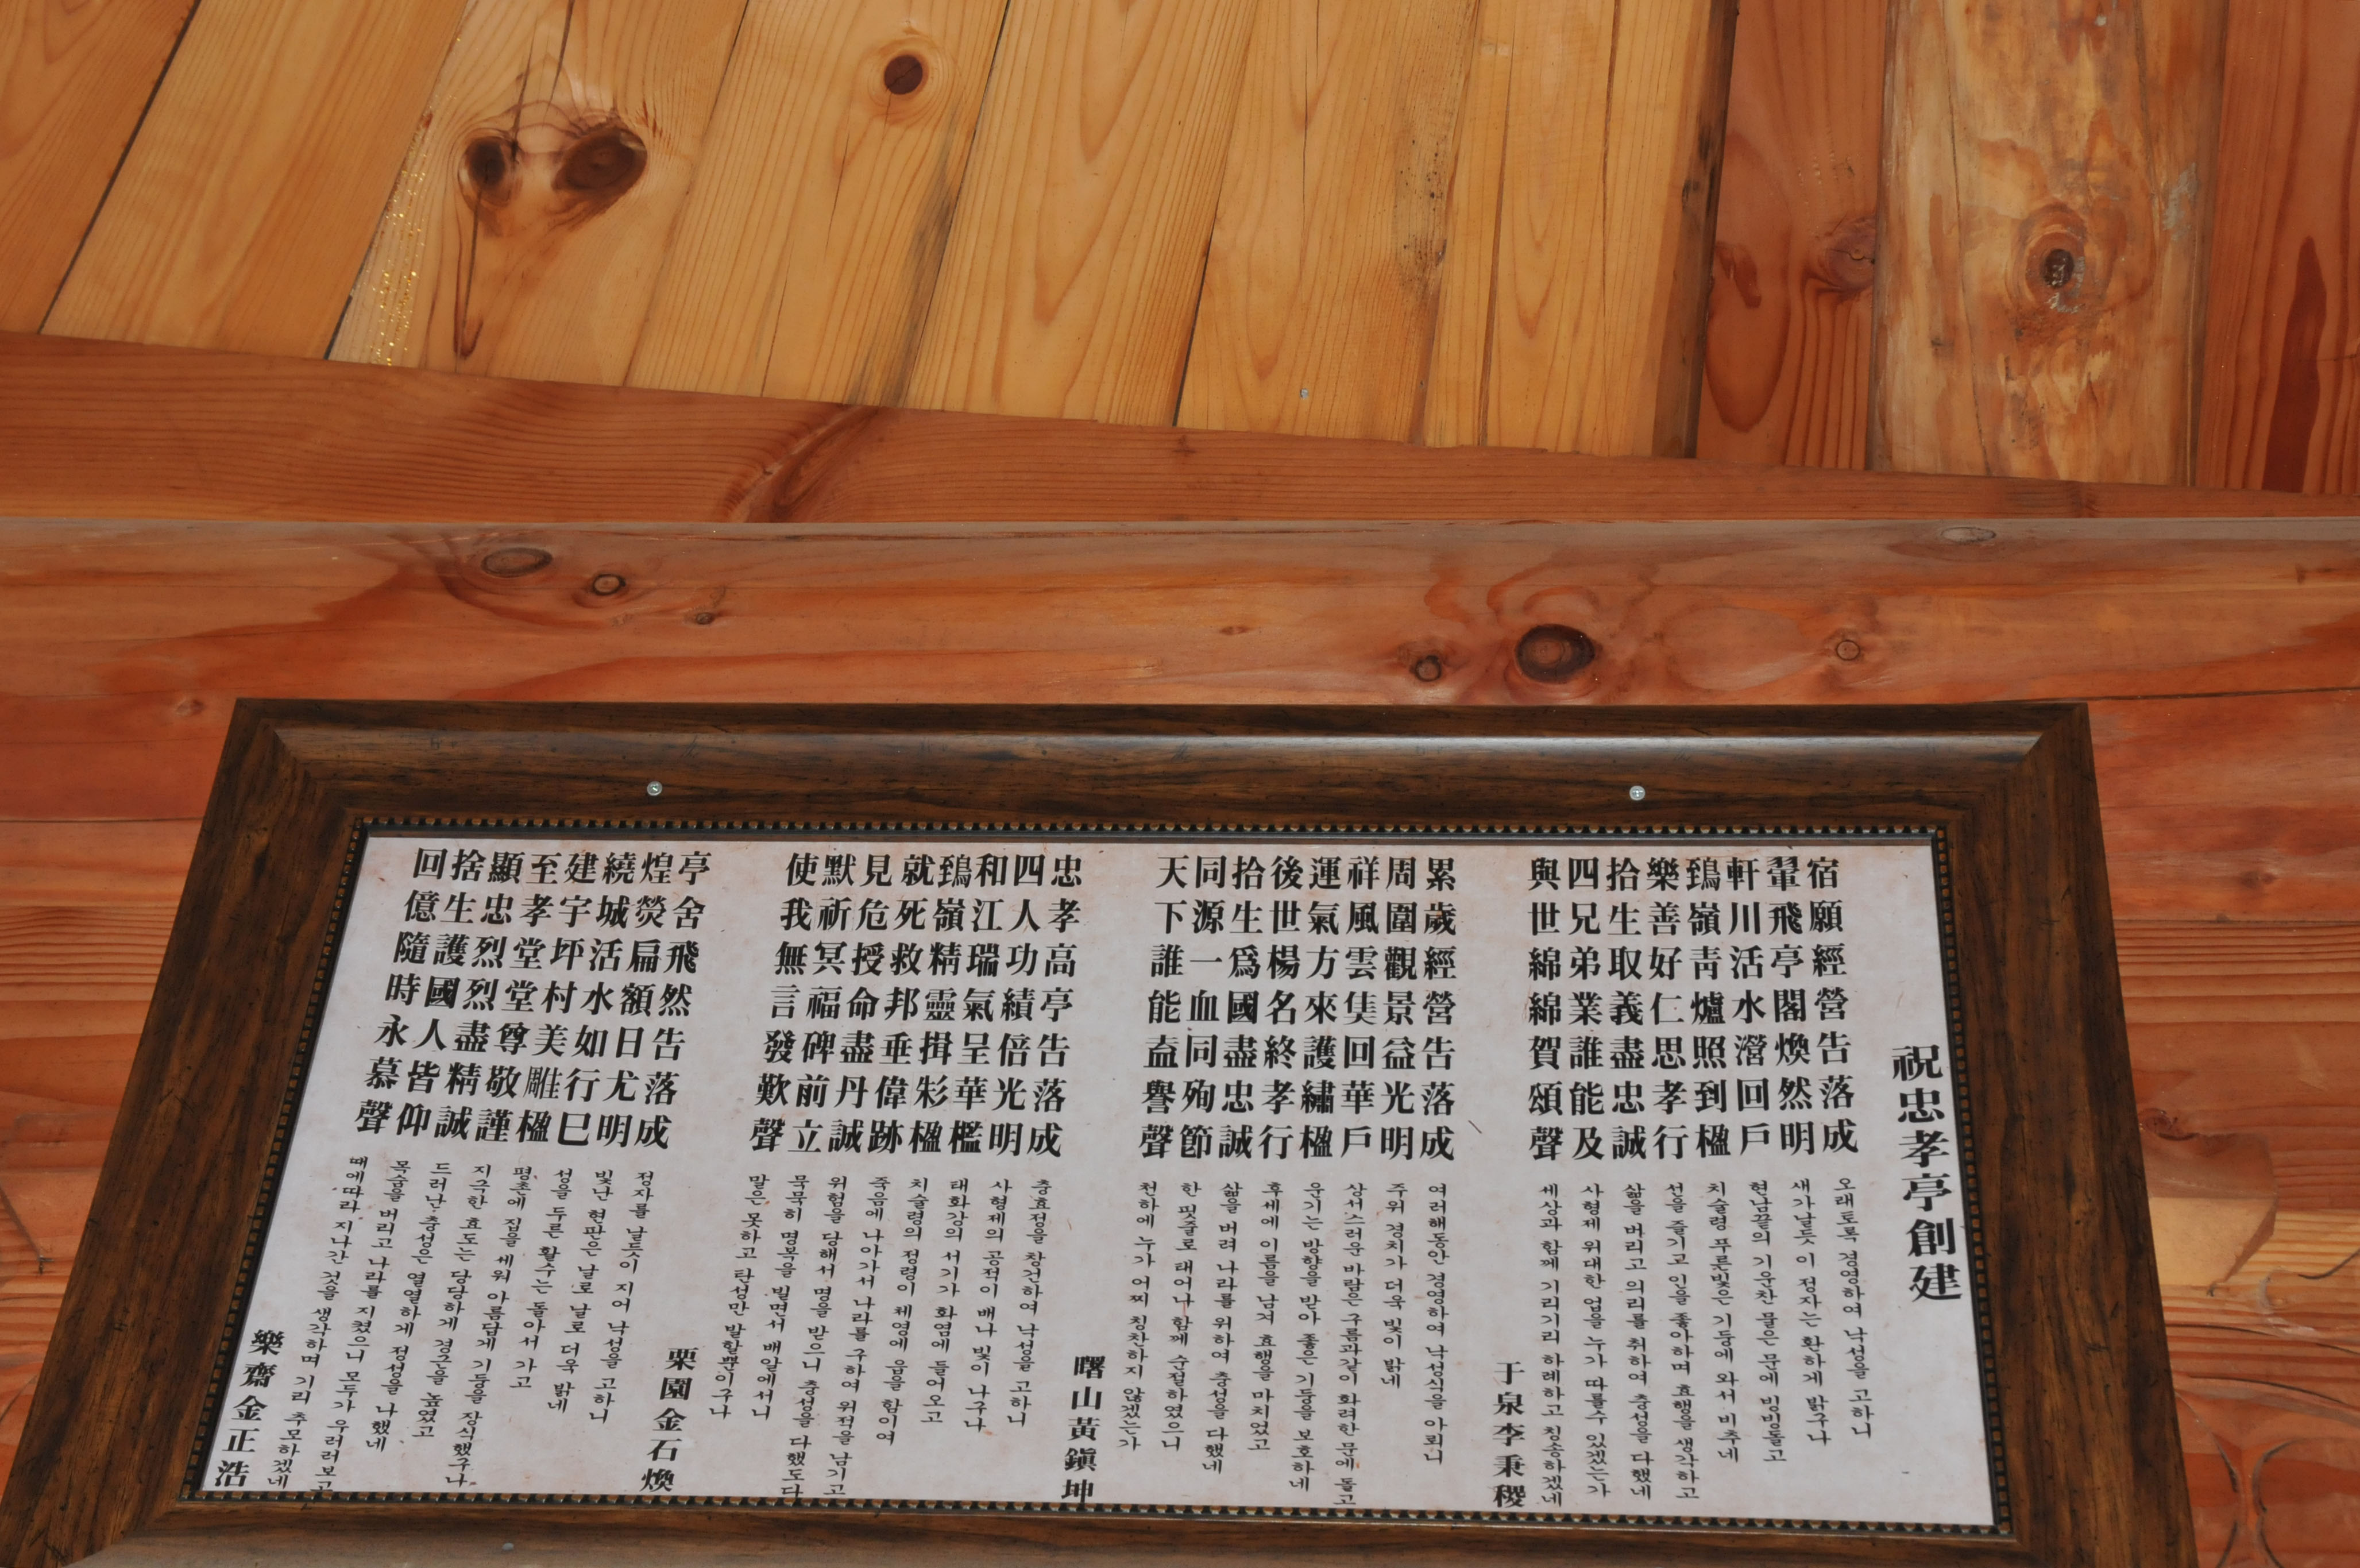 祝忠孝亭創建
宿願經營告落成
翬飛亭閣煥然明
軒川活水瀯回戶
鵄嶺靑爐照到楹
樂善好仁思孝行
拾生取義盡忠誠
四兄弟業誰能及
與世綿綿賀頌聲
오래토록 경영하여 낙성을 고하니
새가날듯이 정자는 환하게 밝구나
현남끝의 기운찬 물은 문에 빙빙돌고
치술령 푸른빛은 기둥에 와서 비추네
선을 즐기고 인을 좋아하며 효행을 생각하고
삶을 버리고 의리를 취하여 충성을 다했네
사형제 위대한 업을 누가 따를수 있겠는가
세상과 함께 기리기리 하례하고 칭송하겠네
于泉李秉稷
累歲經營告落成
周圍觀景益光明
祥風雲集回華戶
運氣方來護繡楹
後世楊名終孝行
拾生爲國盡忠誠
同源一血同殉節
天下誰能盍譽聲
여러해동안 경영하여 낙성식을 아뢰니
주위 경치가 더욱 빛이 밝네
상서스러운 바람은 구름과같이 화려한 문에 돌고
운기는 방향을 받아 좋은 기둥을 보호하네
후세에 이름을 남겨 효행을 마치었고
삶을 버려 나라를 위하여 충성을 다했네
한 핏줄로 태어나 함께 순절하였으니
천하에 누가 어찌 칭찬하지 않겠는가
曙山黃鎭坤
忠孝高亭告落成
四人功績倍光明
和江瑞氣呈華檻
鵄嶺精靈揖彩楹
就死救邦垂偉跡
見危授命盡丹誠
默祈冥福碑前立
使我無言發歎聲
충효정을 창건하여 낙성을 고하니
사형제의 공적이 배나 빛이 나구나
태화강의 서기가 화염에 들어오고
치술령의 정령이 체영에 읍을 함이여
죽음에 나아가서 나라를 구하여 위적을 남기고
위험을 당해서 명을 받으니 충성을 다했도다
묵묵히 명복을 빌면서 배알에서니
말은 못하고 탄성만 발할뿐이구나
栗園金石煥
亭舍飛然告落成
煌熒扁額日尤明
繞城活水如行巳
建宇坪村美雕楹
至孝堂堂尊敬謹
顯忠烈烈盡精誠
捨生護國人皆仰
回億隨時永慕聲
정자를 날듯이 지어 낙성을 고하니
빛난 현판은 날로 날로 더욱 밝네
성을 두른 활수는 돌아서 가고
평촌에 집을 세워 아름답게 기둥을 장식했구나
지극한 효도는 당당하게 경근을 높였고
드러난 충성은 열열하게 정성을 다했네
목숨을 버리고 나라를 지켰으니 모두가 우러러보고
때에따라 지나간 것을 생각하며 기리 추모하겠네
樂齋金正浩